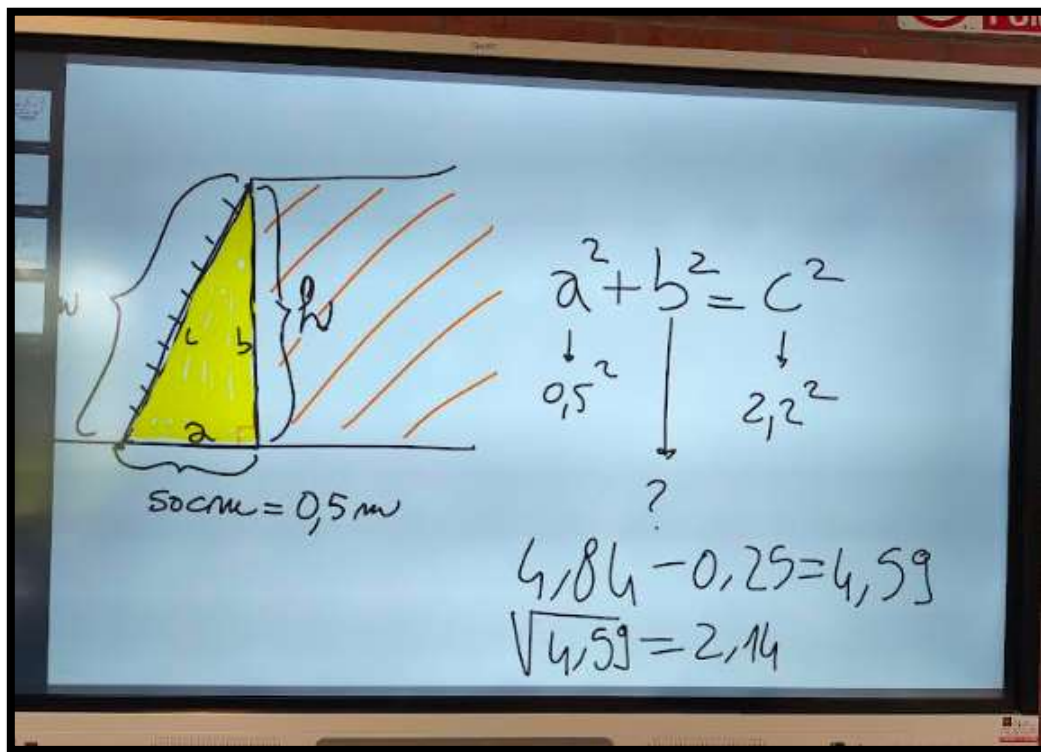 c
b
h
a
50cm = 0,5 m
a² + b² = c²
↓ ↓ ↓
0,5² 2,2²
?
4,84 - 0,25 = 4,59
√4,59 = 2,14